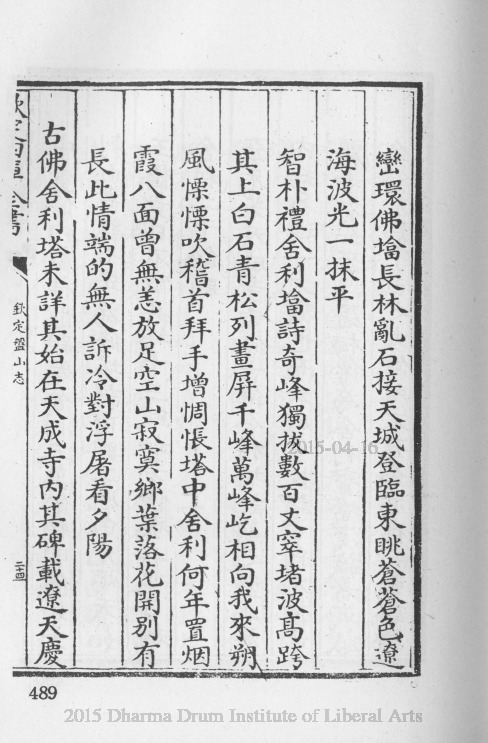 巒環佛墖長林亂石接天城登臨東眺蒼蒼色遼
海波光一抹平
智朴禮舍利墖詩奇峰獨拔數百丈窣堵波髙跨
其上白石青松列畫屏千峰萬峰屹相向我來朔
風慄慄吹稽首拜手增惆悵塔中舍利何年置烟
霞八面曾無恙放足空山寂寞鄉葉落花開別有
長此情端的無人訴冷對浮屠看夕陽
古佛舍利塔未詳其始在天成寺内其碑載遼天慶
欽定四庫全書
欽定盤山志
二十四
2015-04-16
489
2015 Dharma Drum Institute of Liberal Arts